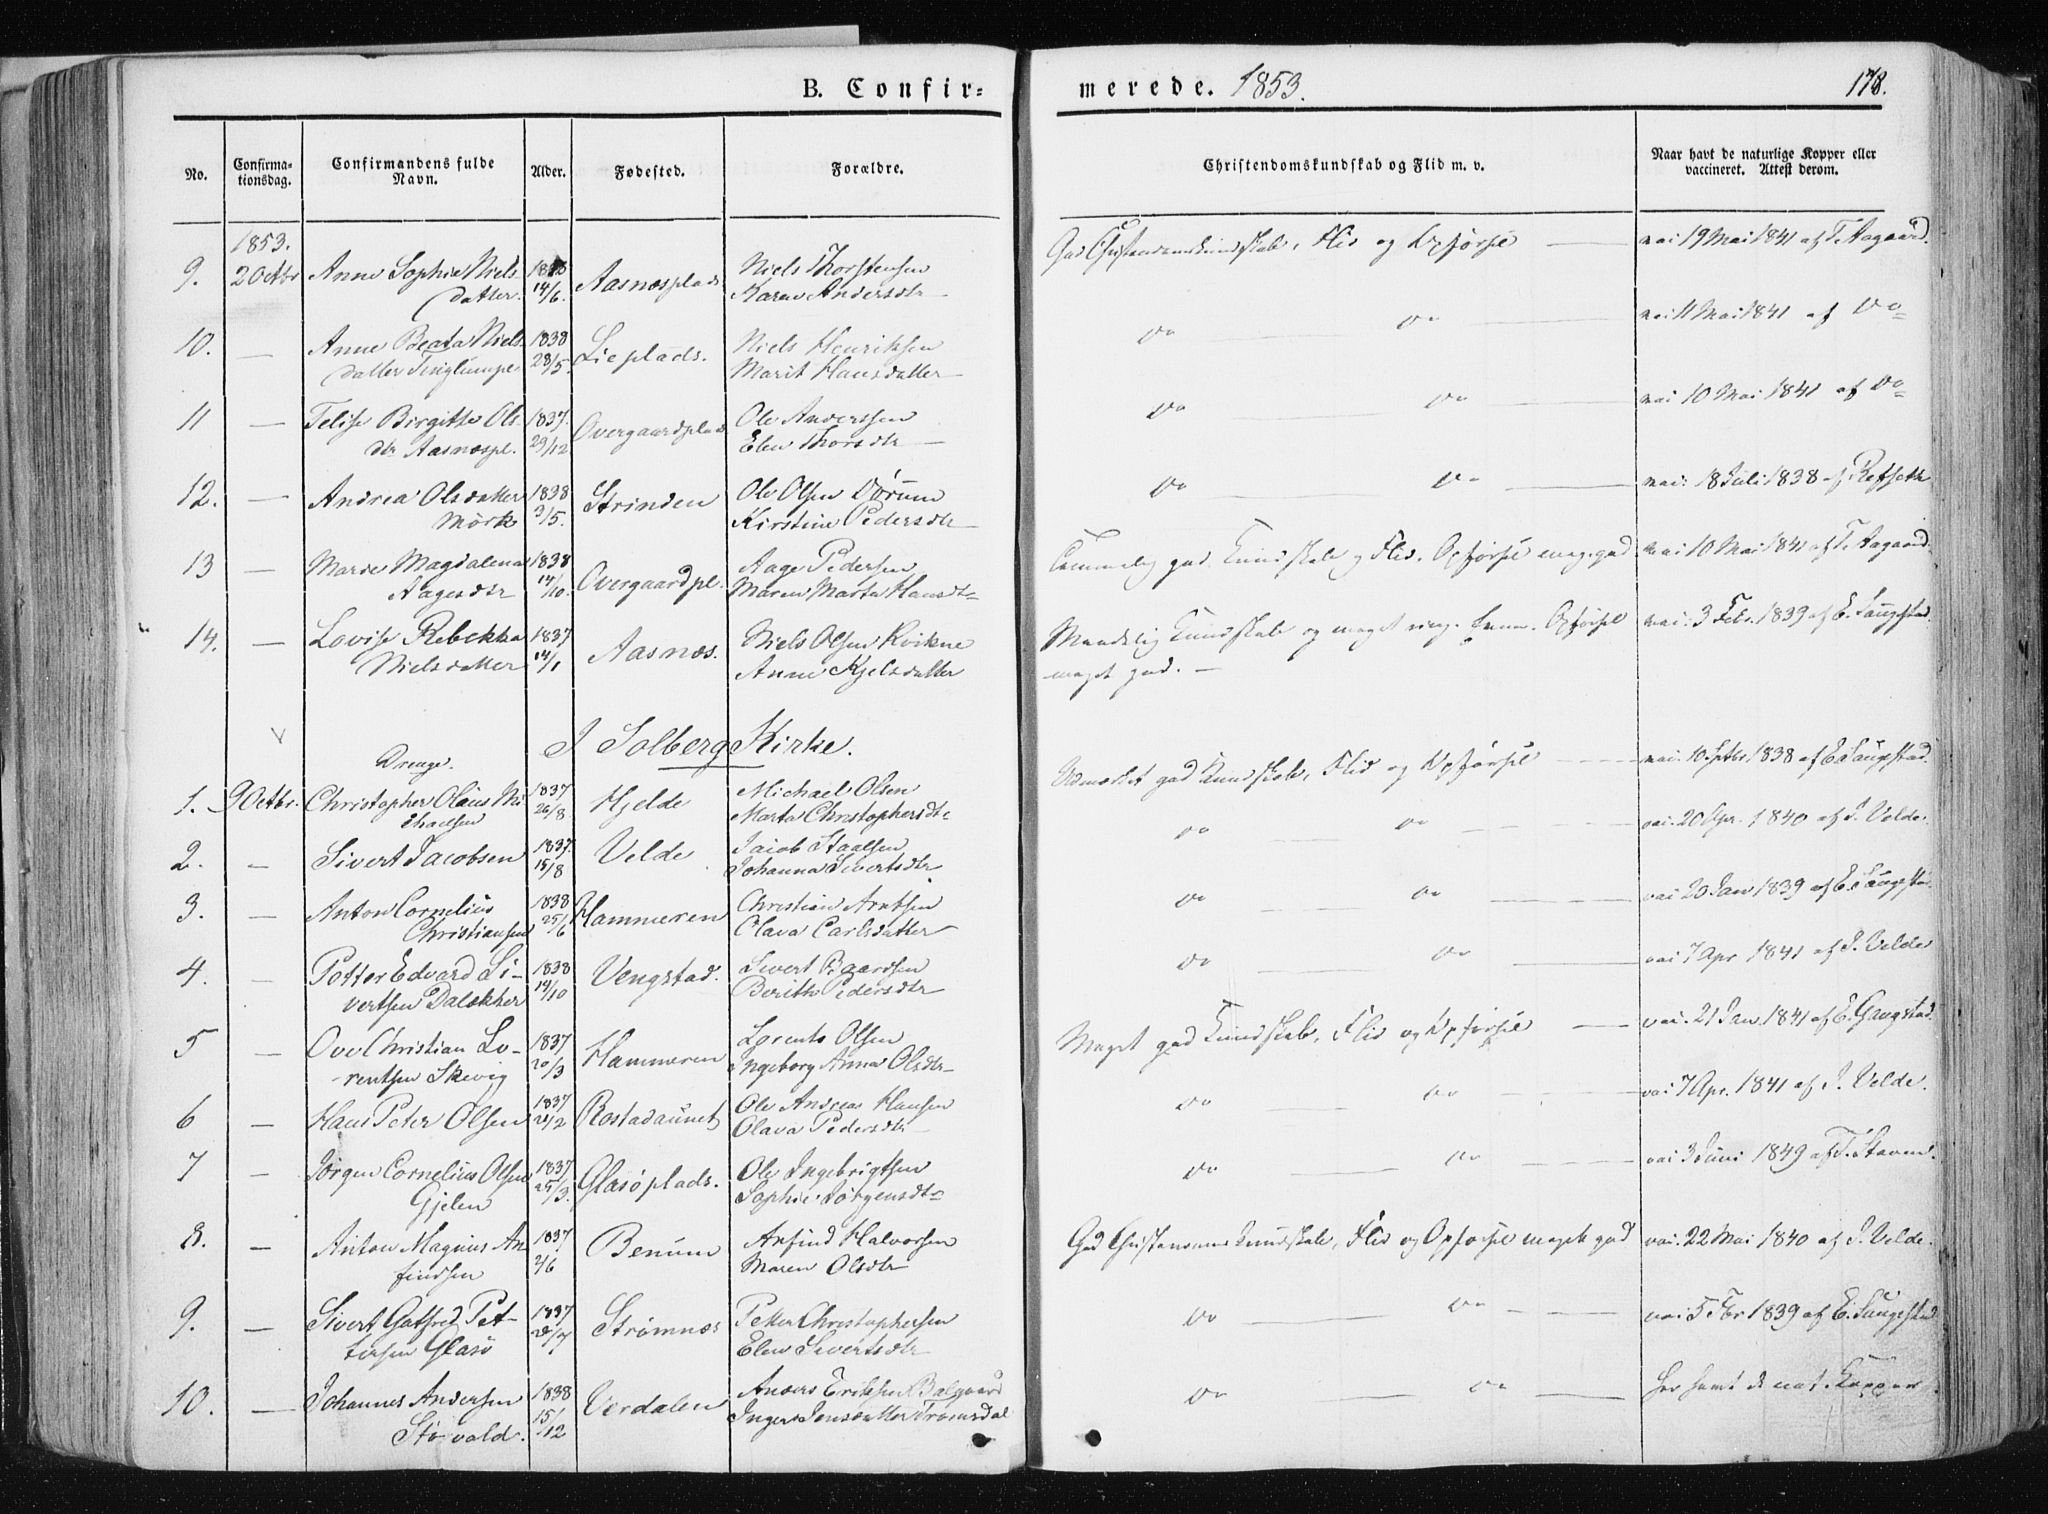 B. Confir-
merede. 1853.
178.
No.
Confirma-
tionsdag.
Confirmandens fulde
Navn.
Alder.
Fødested.
Forældre.
Christendomskundskab og Flid m. v.
Naar havt de naturlige Kopper eller
vaccineret. Attest derom.
1853.
9. 2 Octbr Anne Sophie Niels 14/6. Aasnæsplads Niels Thorstensen God Christendomskundskab, Flid og Opførsel vac 19 Mai 1841 af T. Aagaard.
datter. Karen Andersdtr
10. — Anne Beata Niels 1838 Lieplads. Niels Henriksen do do vac 11 Mai 1841 af do
datter Tinglumpl 28/5. Marit Hansdatter
11 — Birgitte Ols 1837. Overgaardplads Ole Anderssen do do vac 10 Mai 1841 af do
dtr Aasnæspl. 29/12 Elen Thorsdtr
12. — Andrea Olsdatter 1838 Strinden Ole Olsen Dörum do do vac. 18 Juli 1838 af
Mörk 3/5. Kirstine Pedersdtr
13 — Magdalena 1838 Overgaardpl. Aage Pedersen Temmelig god Kundskab og Flid. Opførsel meg. god vac 10 Mai 1841 af T. Aagaard.
Aagesdtr 14/10. Maren Marta Hansdtr
14. — Lovise Rebekka 1837 Aasnæs. Niels Olsen Kvikne Maadelig Kundskab og meget ring. Opførsel vac. 3 Febr. 1839 af E. Saugestad
Nielsdatter 14/1 Anne Kjelsdatter meget god. —
I Solberg Kirke.
Drenge.
1. 9 Octbr. Christopher Olaus Mi 1837 Hjelde Michael Olsen Udmærket god Kundskab, Flid og Opførsel vac. 10 Septbr. 1838 af E. Saugestad.
chaelsen 26/8 Marta Christophersdtr
2. — Sivert Jacobsen 1837. Velde Jacob Staalsen do do vac. 20 Apr. 1840 af J. Velde.
15/8 Johanna Sivertsdtr
3. — Anton Cornelius 1838 Hammeren Christian Arntsen do do vac 20 Jan 1839 af E. Saugestad
Christiansen 25/6 Olava Carlsdatter
4. — Petter Edvard Si- 1838 Vengstad. Sivert Baardsen do do vac 7 Apr 1841 af J. Velde
vertsen Dalækher 19/10 Berith Pedersdtr
5 — Ove Christian Lo- 1837 Hammeren Lorents Olsen Meget god Kundskab, Flid og Opførsel vac. 21 Jan. 1841 af E. Gaugstad.
rentsen Skevig 20/3 Ingeborg Anna Olsdtr
6 — Hans Peter Olsen 1837 Rostadaunet Ole Andreas Hansen do do vac 7 Apr. 1841 af J. Velde.
21/2 Olava Pedersdtr
7 — Jörgen Cornelius Olsen 1837 Glasöplads. Ole Ingebrigtsen do do vac 3 Juni 1849 af
Gjelen 25/3. Sophie Jörgensdtr
8. — Anton Magnus An 1837 Benum Anfind Halvorsen God Christendomskundskab, Flid og Opførsel meget god vac. 22 Mai 1840 af J. Velde.
findsen 2/6 Maren Olsdtr
9. — Sivert Gotfred Pet- 1837 Strömnæs Petter Christophersen do do vac 5 Fbr 1839 af E. Saugestad
tersen Glasö 28/7 Elen Sivertsdtr
10. — Johannes Andersen 1838 Verdalen Anders Eriksen Balgaard do do har havt de nat. Kopper
Stö vald. 15/12 Inger Jonsdatter Tromsdal